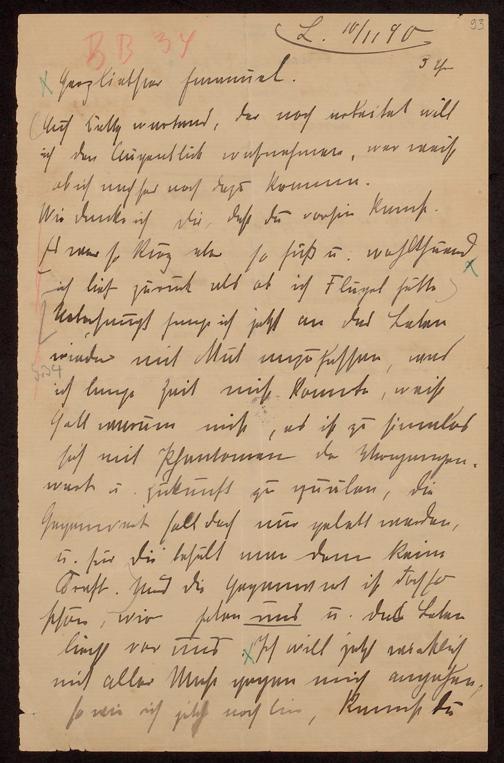 93
BB 34
L. 10/11 90
3 Uhr
Herzliebster Emanuel.
Auf Betty wartend, der noch arbeitet will
ich den Augenblick wahrnehmen, wer weiß
ob ich nachher noch dazu komme.
Wie danke ich Dir, daß du vorhin kamst.
Es war so kurz aber so süß u. wohlthuend
ich lief zurück als ob ich Flügel hätte
Überhaupt fange ich jetzt an das Leben
wieder mit Mut anzufassen, was
534
ich lange Zeit nicht konnte, weiß
Gott warum nicht, es ist zu sinnlos
sich mit Phantomen der Vergangen-
u. Zukunft zu quälen, die
Gegenwart soll doch nur gelebt werden,
u. für die behält man dann keine
Kraft. Und die Gegenwart ist
schön, wir haben uns u. das Leben
liegt vor uns. Ich will jetzt wirklich
mit aller Macht gegen mich angehen,
so wie ich jetzt noch bin, kannst du